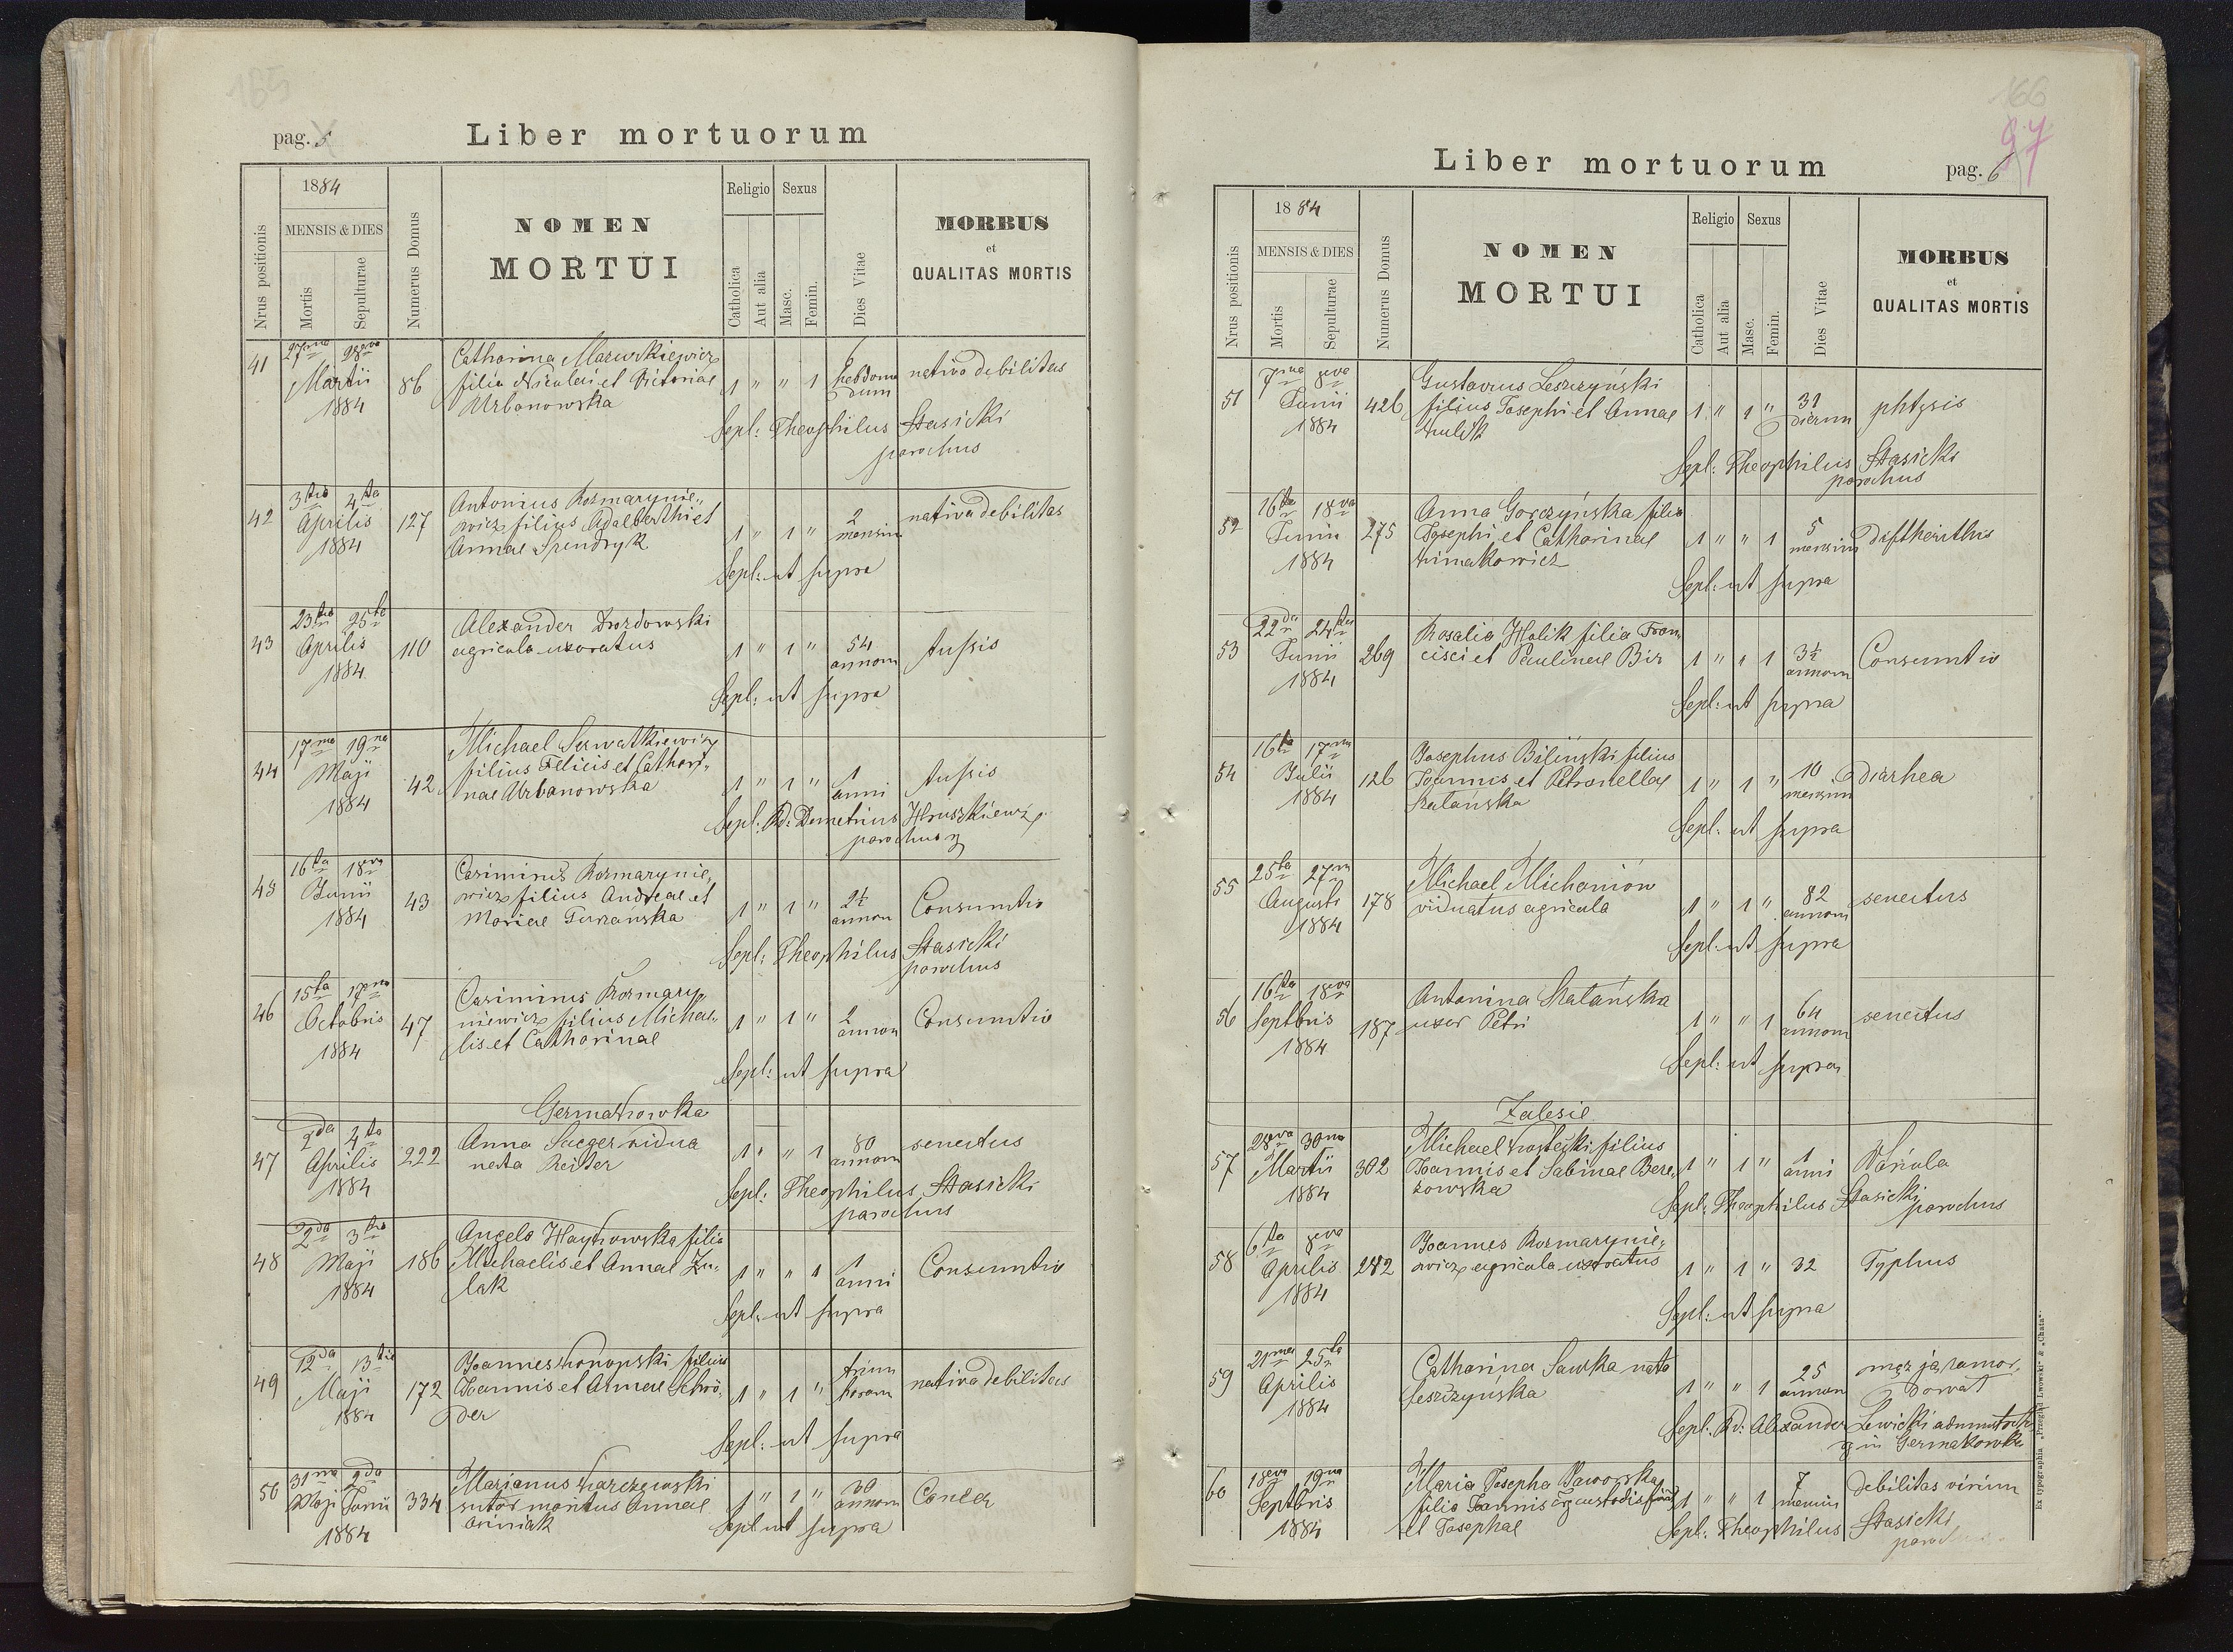 165
pag. 5
Liber mortuorum
Nrus positionis
1884
MENSIS & DIES
Mortis
Sepulturae
Numerus Domus
NOMEN
MORTUI
Religio
Catholica
Aut alia
Sexus
Masc.
Femin.
Dies Vitae
MORBUS
et
QUALITAS MORTIS
41
27ma 28va
Martii
1884
86
Catharina Mazurkiewicz
filia Nicolai et Victoriae
Urbanowska
1 " " 1
6
hebdoma
dum
nativa debilitas
Sepl: Theophilus Stasicki
parochus
42
3tia 4ta
Aprilis
1884
127
Antonius Rozmarynie„
wicz filius Adalberthi et
Annae Spendryk
1 " 1 "
2
mensium
nativa debilitas
Sepl: ut supra
43
23tia 25ta
Aprilis
1884
110
Alexander Drozdowski
agricola uxoratus
1 " 1 "
54
annorum
tussis
Sepl: ut supra
44
17ma 19na
Maji
1884
42
Michael Serwatkiewicz
filius Felicis et Cathari„
nae Urbanowska
1 " 1 "
1
anni
tussis
Sepl: Rd: Demetrius Hruszkiewicz
parochus
45
16ta 18va
Junii
1884
43
Casimirus Rozmarynie„
wicz filius Andreae et
Mariae Turzańska
1 " 1 "
2½
annorum
Consumtio
Sepl: Theophilus Stasicki
parochus
46
15ta 17ma
Octobris
1884
47
Casimirus Rozmary„
niewicz filius Michae„
lis et Catharinae
1 " 1 "
2
annorum
Consumtio
Sepl: ut supra
Germakowka
47
2da 4ta
Aprilis
1884
222
Anna Saeger vidua
nata Reiter
1 " " 1
80
annorum
senectus
Sepl: Theophilus Stasicki
parochus
48
2da 3tia
Maji
1884
186
Angela Haytkowska filia
Michaelis et Annae Zu„
lak
1 " " 1
1
anni
Consumtio
Sepl: ut supra
49
12da 13tia
Maji
1884
172
Joannes Konopski filius
Joannis et Annae Schrö„
der
1 " 1 "
trium
horarum
nativa debilitas
Sepl: ut supra
50
31ma 2da
Maji Junii
1884
334
Marianus Karczewski
sutor maritus Annae
1 " 1 "
30
annorum
Cancer
Sepl: ut supra
166
97
Liber mortuorum
pag. 6
Nrus positionis
1884
MENSIS & DIES
Mortis
Sepulturae
Numerus Domus
NOMEN
MORTUI
Religio
Catholica
Aut alia
Sexus
Masc.
Femin.
Dies Vitae
MORBUS
et
QUALITAS MORTIS
51
7ma 8va
Junii
1884
426
Gustavus Leszczyński
filius Josephi et Annae
Kulik
1 " 1 "
31
dierum
phtysis
Sepl: Theophilus Stasicki
parochus
52
16ta 18va
Junii
1884
275
Anna Gorczyńska filia
Josephi et Catharinae
Klimakowicz
1 " " 1
5
mensium
diftherithis
Sepl: ut supra
53
22da 24ta
Junii
1884
269
Rosalia Halik filia Fran„
cisci et Paulinae Bir
1 " " 1
3½
annorum
Consumtio
Sepl: ut supra
54
16ta 17ma
Julii
1884
126
Josephus Biliński filius
Joannis et Petronellae
Szatańska
1 " 1 "
10
mensium
Diarhea
Sepl: ut supra
55
25ta 27ma
Augusti
1884
178
Michael Michaniów
viduatus agricola
1 " 1 "
82
annorum
senectus
Sepl: ut supra
56
16ta 18va
Septbris
1884
187
Antonina Szatańska
uxor Petri
1 " " 1
64
annorum
senectus
Sepl: ut supra
Zalesie
57
28va 30ma
Martii
1884
302
Michael filius
Joannis et Sabinae Bere„
zowska
1 " 1 "
1
anni
Variola
Sepl: Theophilus Stasicki
parochus
58
6ta 8va
Aprilis
1884
242
Joannes Rozmarynie„
wicz agricola uxoratus
1 " 1 "
32
Typhus
Sepl: ut supra
59
21ma 25ta
Aprilis
1884
Catharina Sawka nata
Leszczyńska
1 " " 1
25
annorum
mąż ją zamor„
dował
Sepl: Rd: Alexander Lewicki administrator
in Germakowka
60
18va 19na
Septbris
1884
Maria Josepha Jaworska
filia Joannis custodis
et Josephae
1 " " 1
7
mensium
debilitas virium
Sepl: Theophilus Stasicki
parochus
Ex typographia „Przegląd Lwowski" & „Chata".